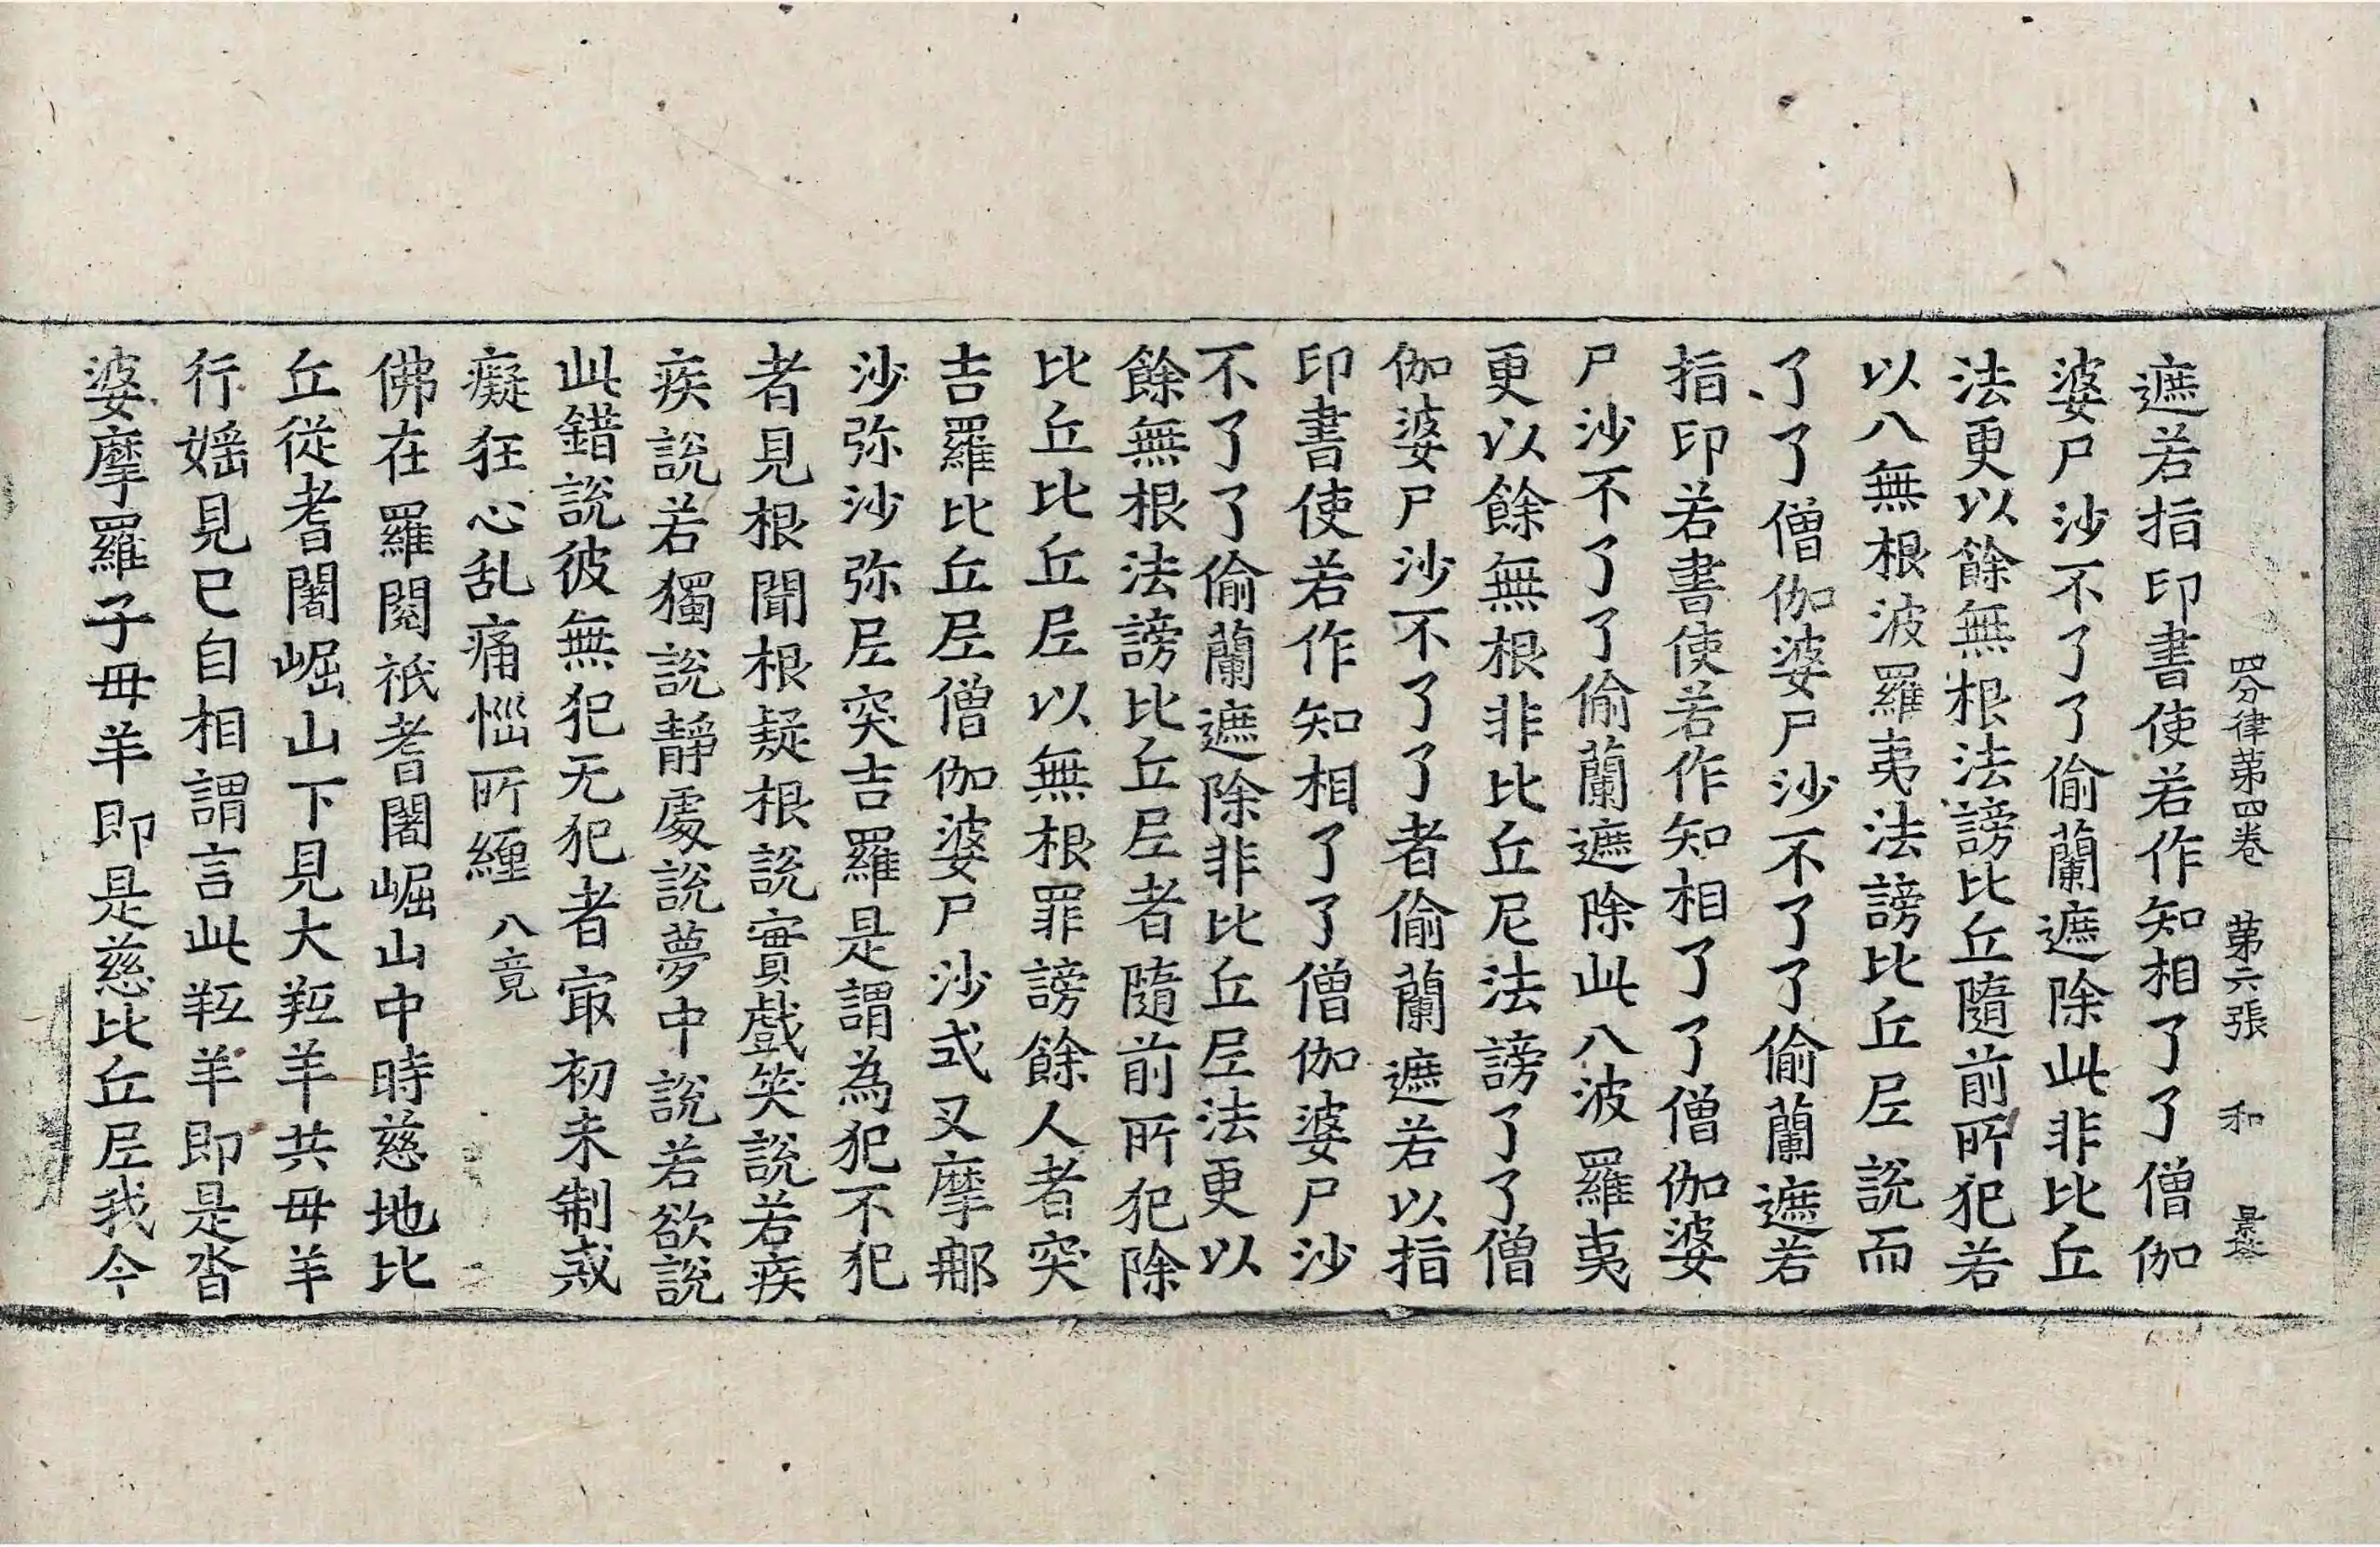 四分律第四卷 第六張 和
遮若指印書使若作知相了了僧伽
婆尸沙不了了偷蘭遮除此非比丘
法更以餘無根法謗比丘隨前所犯若
以八無根波羅夷法謗比丘𡰱說而
了了僧伽婆尸沙不了了偷蘭遮若
指印若書使若作知相了了僧伽婆
尸沙不了了偷蘭遮除此八波羅夷
更以餘無根非比丘尼法謗了了僧
伽婆尸沙不了了者偷蘭遮若以指
印書使若作知相了了僧伽婆尸沙
不了了偷蘭遮除非比丘𡰱法更以
餘無根法謗比丘𡰱者隨前所犯除
比丘比丘𡰱以無根罪謗餘人者突
吉羅比丘𡰱僧伽婆尸沙式叉摩那
沙弥沙弥𡰱突吉羅是謂為犯不犯
者見根聞根疑根說實戲笑說若疾
疾說若獨說靜處說夢中說若欲說
此錯說彼無犯无犯者㝡初未制戒
癡狂心乱痛惱所纏 八竟
佛在羅閱祇耆闍崛山中時慈地比
丘從耆闍崛山下見大羝羊共母羊
行婬見已自相謂言此羝羊即是沓
婆摩羅子母羊即是慈比丘𡰱我今